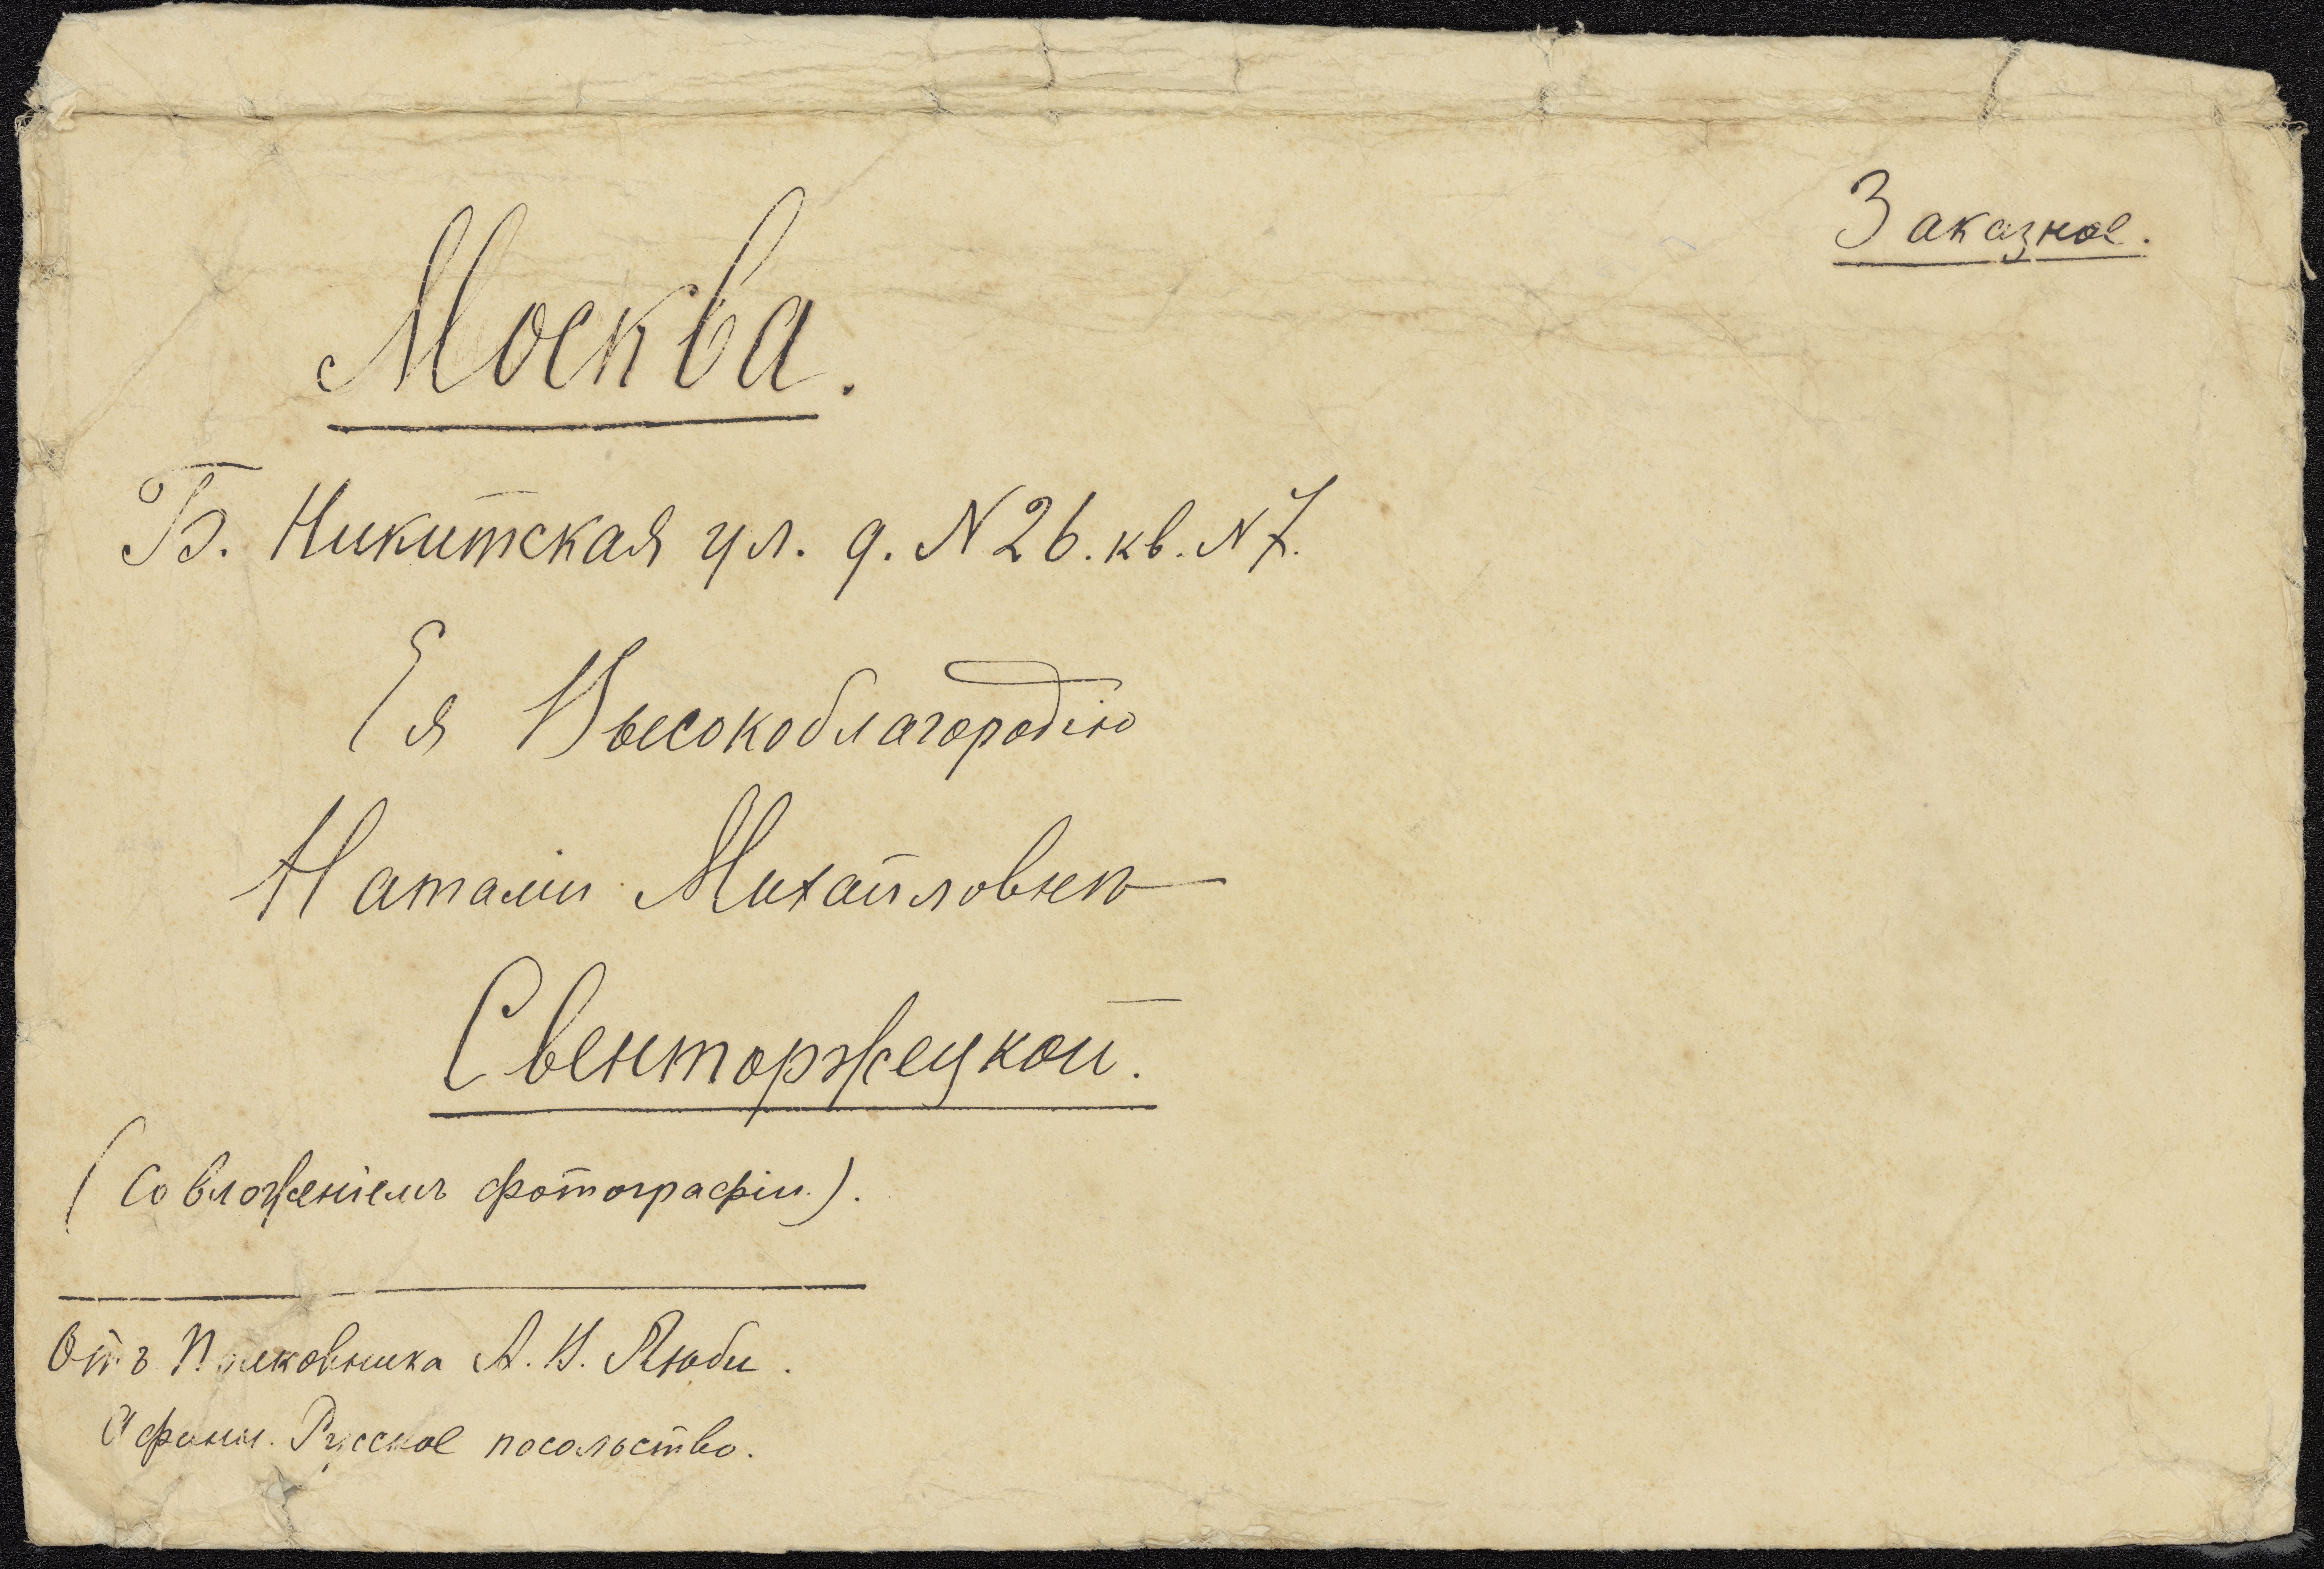 Заказное.
Москва.
Б. Никитская ул. д. N 26. кв. N 7.
Ея Высокоблагородію
Наталіи Михайловнѣ
Свенторжецкой.
(Со вложеніемъ фотографіи.).
Отъ Полковника А. В. Люби.
Афины. Русское посольство.